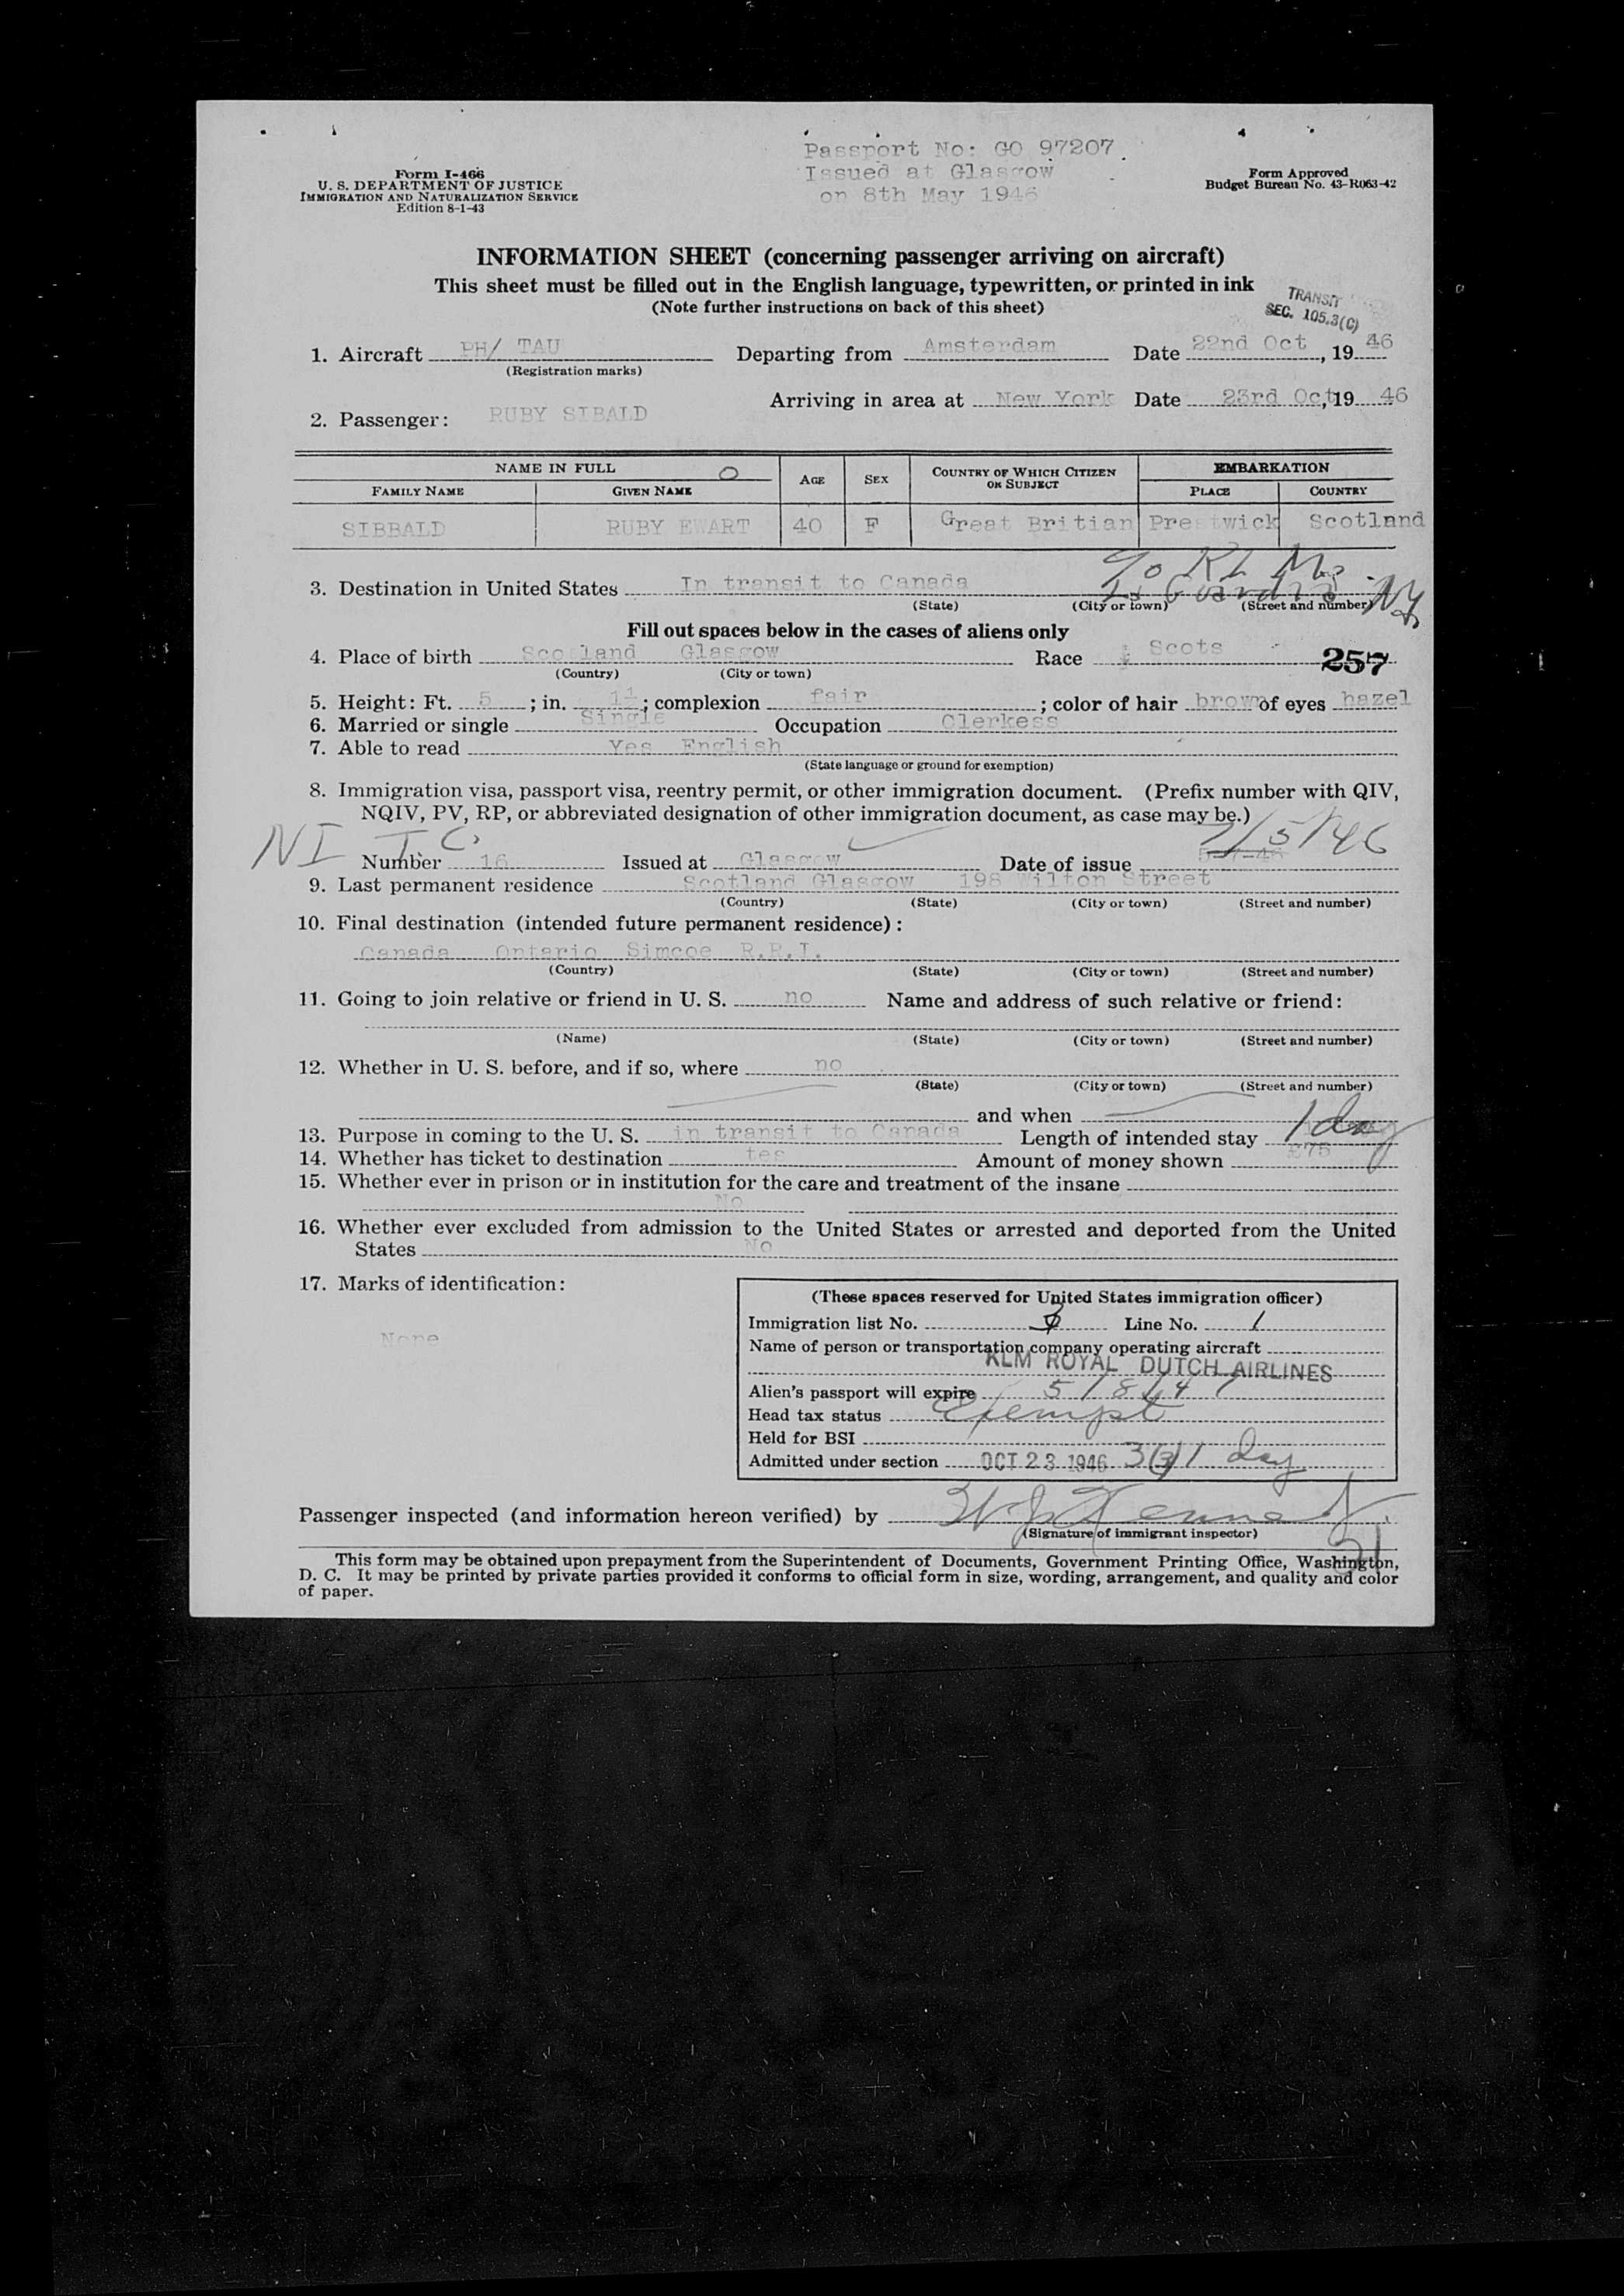 Passport No: GO 97207
Issued at Glasgow
on 8th May 1946
Form I-466
U. S. DEPARTMENT OF JUSTICE
IMMIGRATION AND NATURALIZATION SERVICE
Edition 8-1-43
Form Approved
Budget Bureau No. 43-R063-42
INFORMATION SHEET (concerning passenger arriving on aircraft)
This sheet must be filled out in the English language, typewritten, or printed in ink
(Note further instructions on back of this sheet)
TRANSIT
SEC. 105.3(C)
1. Aircraft PH/ TAU Departing from Amsterdam Date 22nd Oct, 1946
(Registration marks)
Arriving in area at New York Date 23rd Oct, 1946
2. Passenger: RUBY SIBALD
NAME IN FULL O AGE SEX COUNTRY OF WHICH CITIZEN OR SUBJECT EMBARKATION
FAMILY NAME GIVEN NAME PLACE COUNTRY
SIBBALD RUBY EWART 40 F Great Britian Prestwick Scotland
3. Destination in United States In transit to Canada
(State) (City or town) (Street and number) NY
Fill out spaces below in the cases of aliens only
4. Place of birth Scotland Glasgow Race Scots 257
(Country) (City or town)
5. Height: Ft. 5; in. 1½; complexion fair; color of hair brown of eyes hazel
6. Married or single Single Occupation Clerkess
7. Able to read Yes English
(State language or ground for exemption)
8. Immigration visa, passport visa, reentry permit, or other immigration document. (Prefix number with QIV,
NQIV, PV, RP, or abbreviated designation of other immigration document, as case may be.)
NI T.C. Number 16 Issued at Glasgow Date of issue 7/5/46
9. Last permanent residence Scotland Glasgow 198 Wilton Street
(Country) (State) (City or town) (Street and number)
10. Final destination (intended future permanent residence):
Canada Ontario Simcoe R.R.I.
(Country) (State) (City or town) (Street and number)
11. Going to join relative or friend in U. S. no Name and address of such relative or friend:
(Name) (State) (City or town) (Street and number)
12. Whether in U. S. before, and if so, where no
(State) (City or town) (Street and number)
and when
13. Purpose in coming to the U. S. in transit to Canada Length of intended stay 1 day
14. Whether has ticket to destination tes Amount of money shown £75
15. Whether ever in prison or in institution for the care and treatment of the insane
No
16. Whether ever excluded from admission to the United States or arrested and deported from the United
States No
17. Marks of identification:
None
(These spaces reserved for United States immigration officer)
Immigration list No. Line No. 1
Name of person or transportation company operating aircraft
KLM ROYAL DUTCH AIRLINES
Alien's passport will expire 5/8/47
Head tax status Exempt
Held for BSI
Admitted under section OCT 23 1946 3(3) 1 day
Passenger inspected (and information hereon verified) by
(Signature of immigrant inspector)
This form may be obtained upon prepayment from the Superintendent of Documents, Government Printing Office, Washington,
D. C. It may be printed by private parties provided it conforms to official form in size, wording, arrangement, and quality and color
of paper.